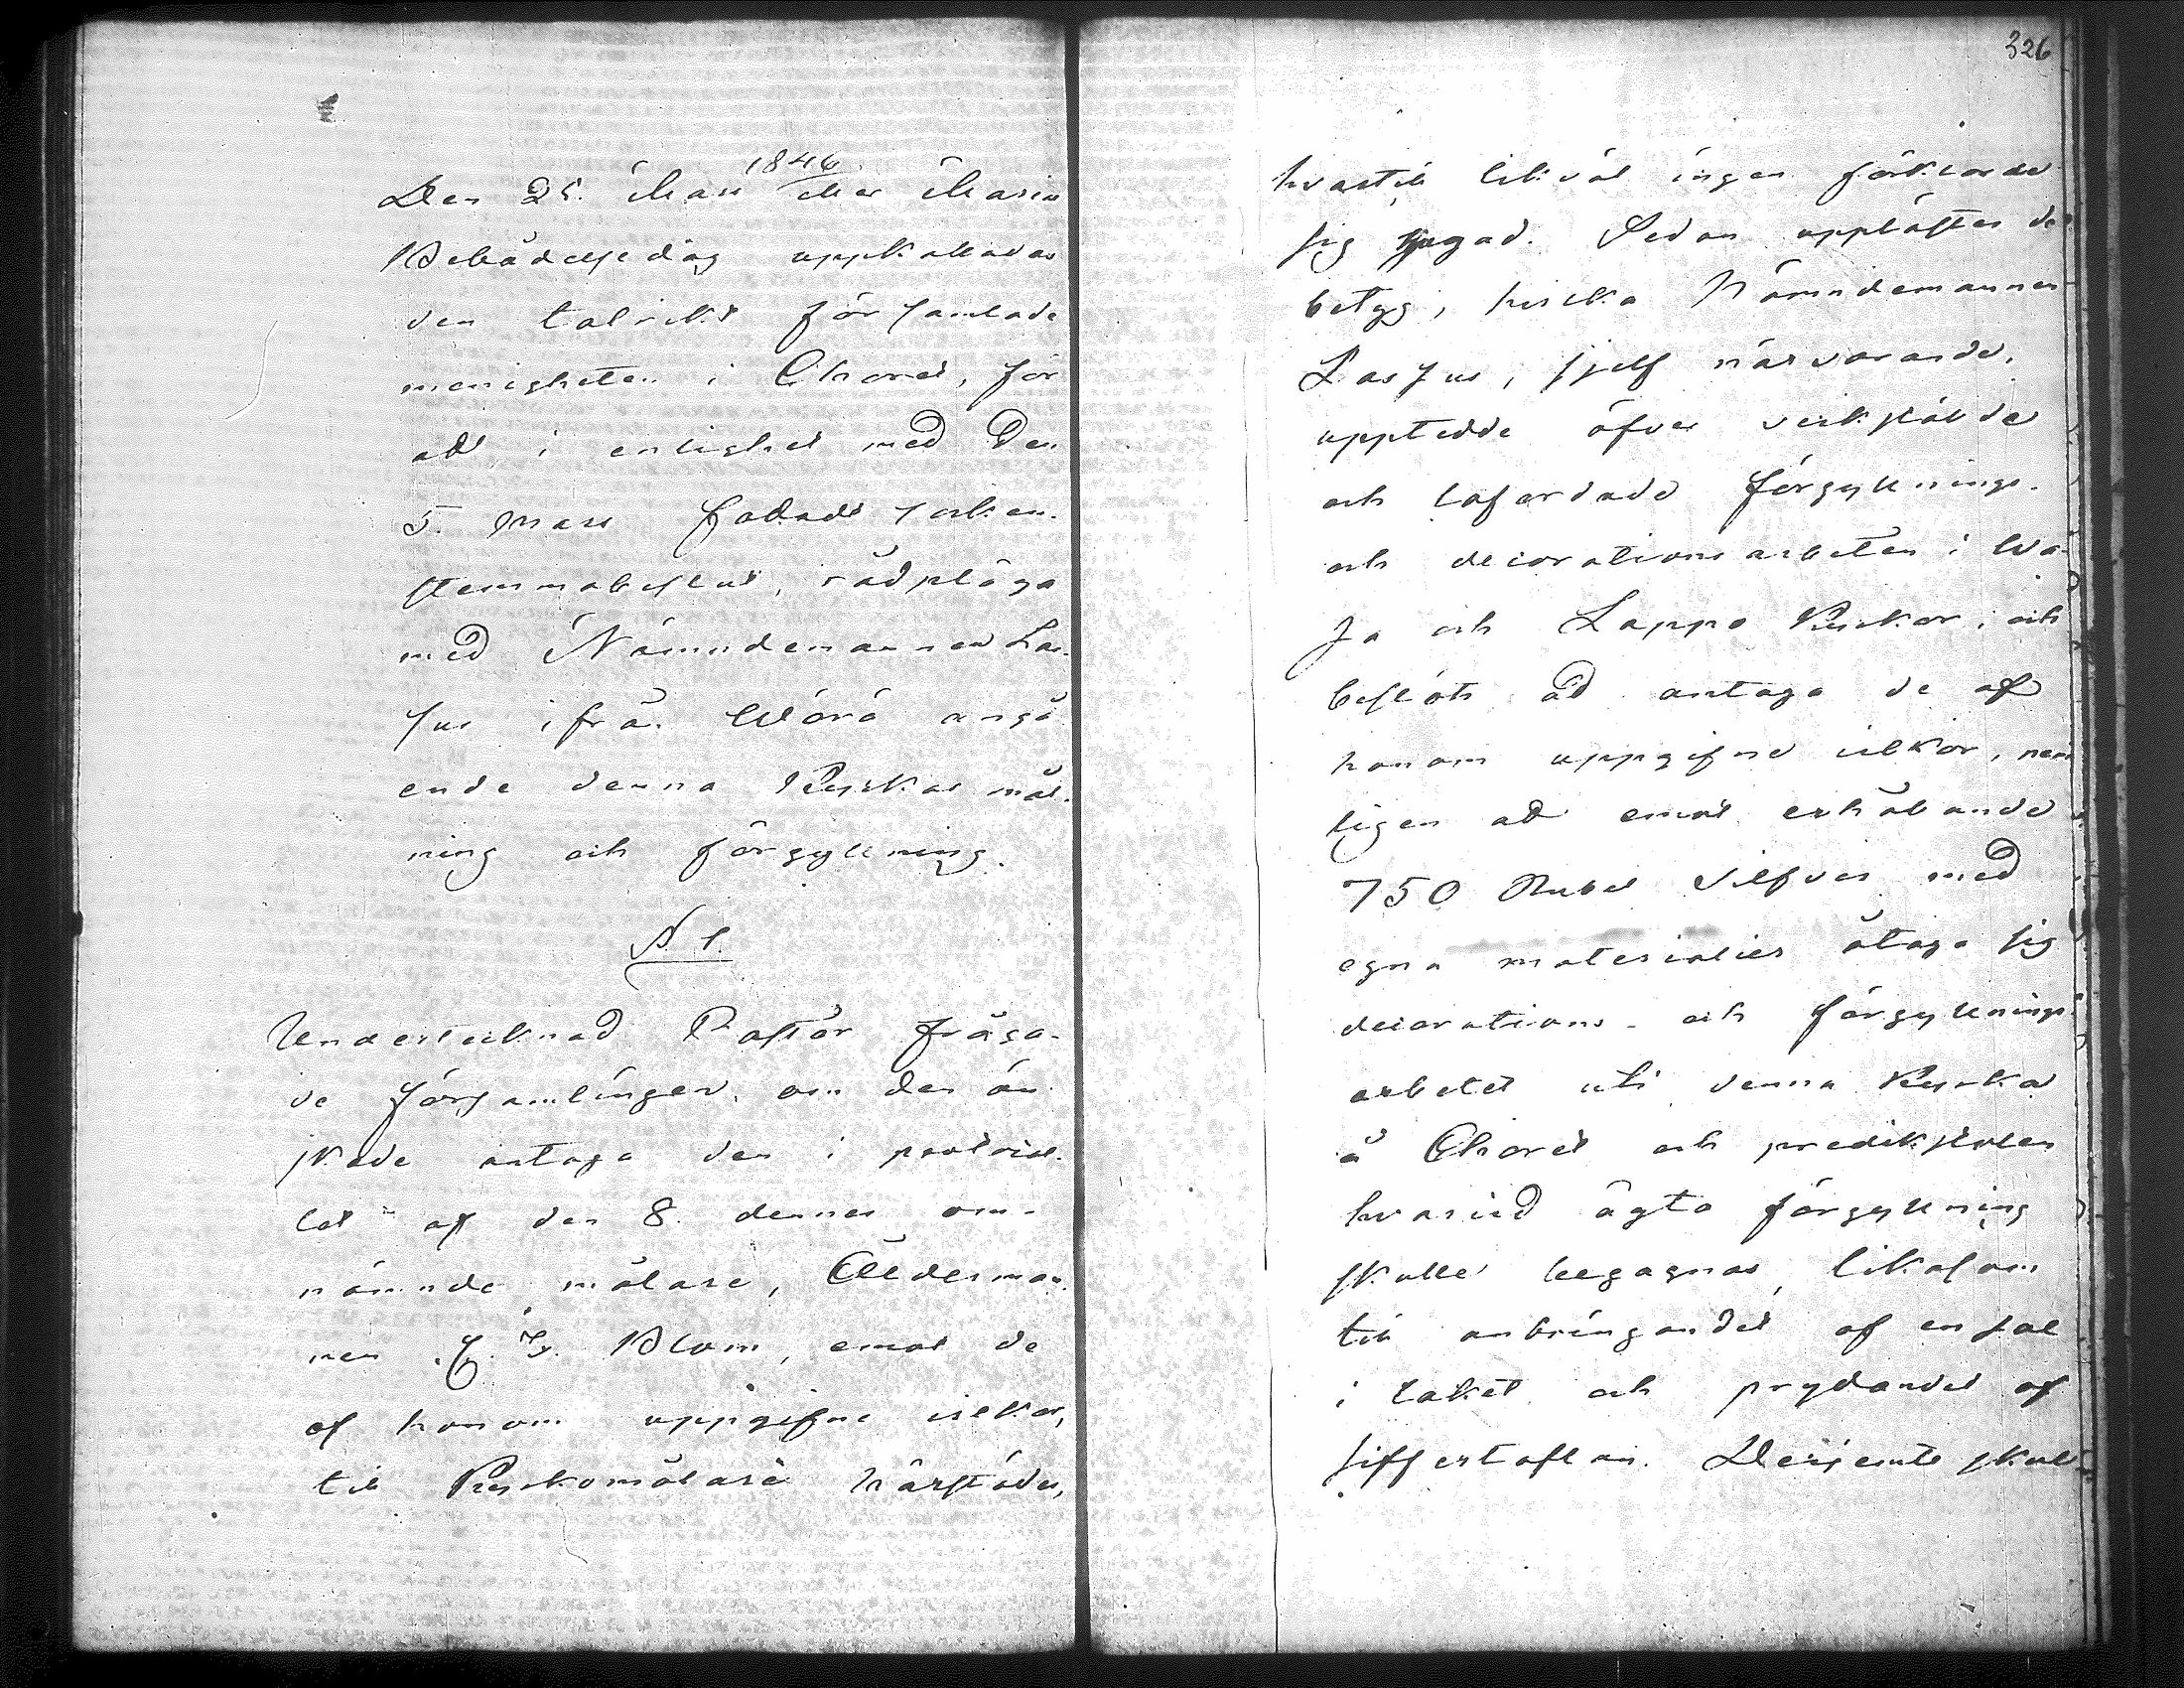 1846
Den 25. Mars eller Mariæ
Bebådelsedag uppkallades
den talrikt församlade
menigheten i Choret, för
att i enlighet med Den
5. Mars fattade socken-
stemmobeslut, rådpläga
med Nämndemannen Las-
sus ifrån Wörå angå
ende denna Kyrkas mål-
ning och förgyllning.
§ 1.
Undertecknad Pastor fråga-
de församlingen, om den ön
skade antaga den i protocol-
let af den 8. dennes om-
nämnde målare, Ålderman
nen Blom, emot de
af honom uppgifne vilkor,
till Kyrkomålare härstädes,
326
hvartill likväl ingen förklarade
sig hugad. Sedan upplästes de
betyg, hvilka Nämndemannen
Lassus, sjelf närvarande,
uppteedde öfver verkstälde
och loford
ade förgyllnings-
och decorations arbeten i Wa-
sa och Lappo Kyrkor; och
beslöts att antaga de af
honom uppgifne vilkor, nem
ligen att emot erhållande
750 Rubel Silfver med
egna materialier åtaga sig
decorations- och förgyllnings
arbetet uti denna Kyrka
å Choret och predikstolen
hvarvid ägta förgyllning
skulle begagnas, likasom
till anbringandet af en sol
i taket och prydandet af
siffertaflan. Derjemte skul